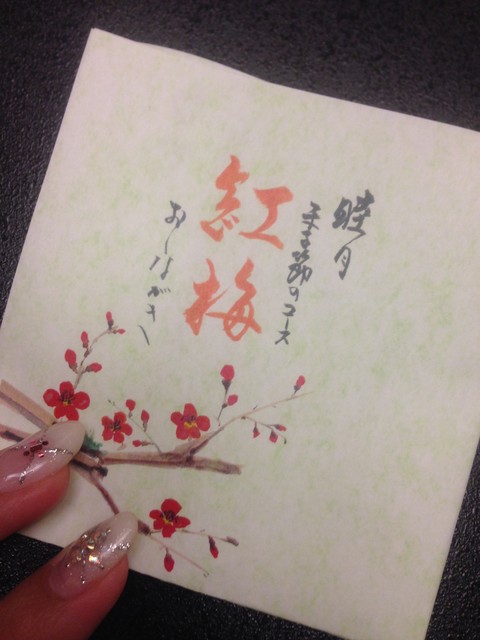 睦月
季節のコース
紅梅
おしながき